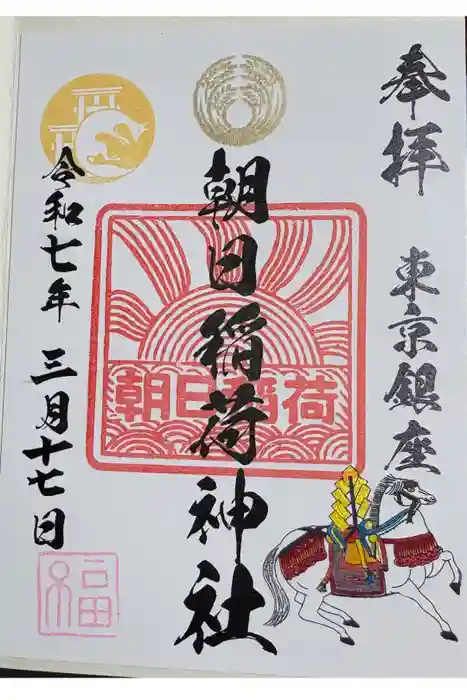 奉拝
東京銀座
朝日稲荷神社
朝日稲荷
令和七年 三月十七日
福